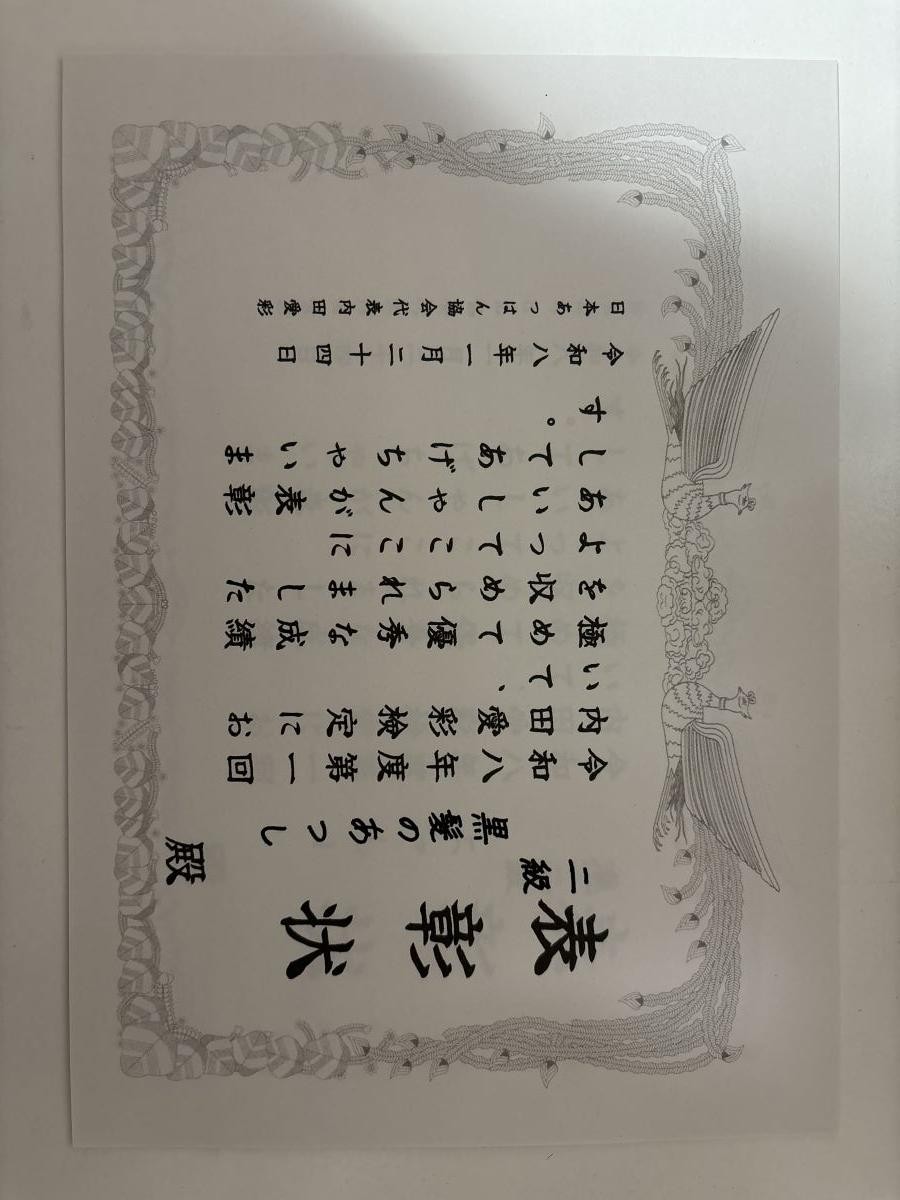 表彰状
二級
黒髪のあつし
殿
令和八年度第一回
内田愛彩検定にお
いて、
極めて優秀な成績
を収められました
よってここに
あいしゃんが表彰
してあげちゃいま
す。
令和八年一月二十四日
日本あつはん協会代表内田愛彩